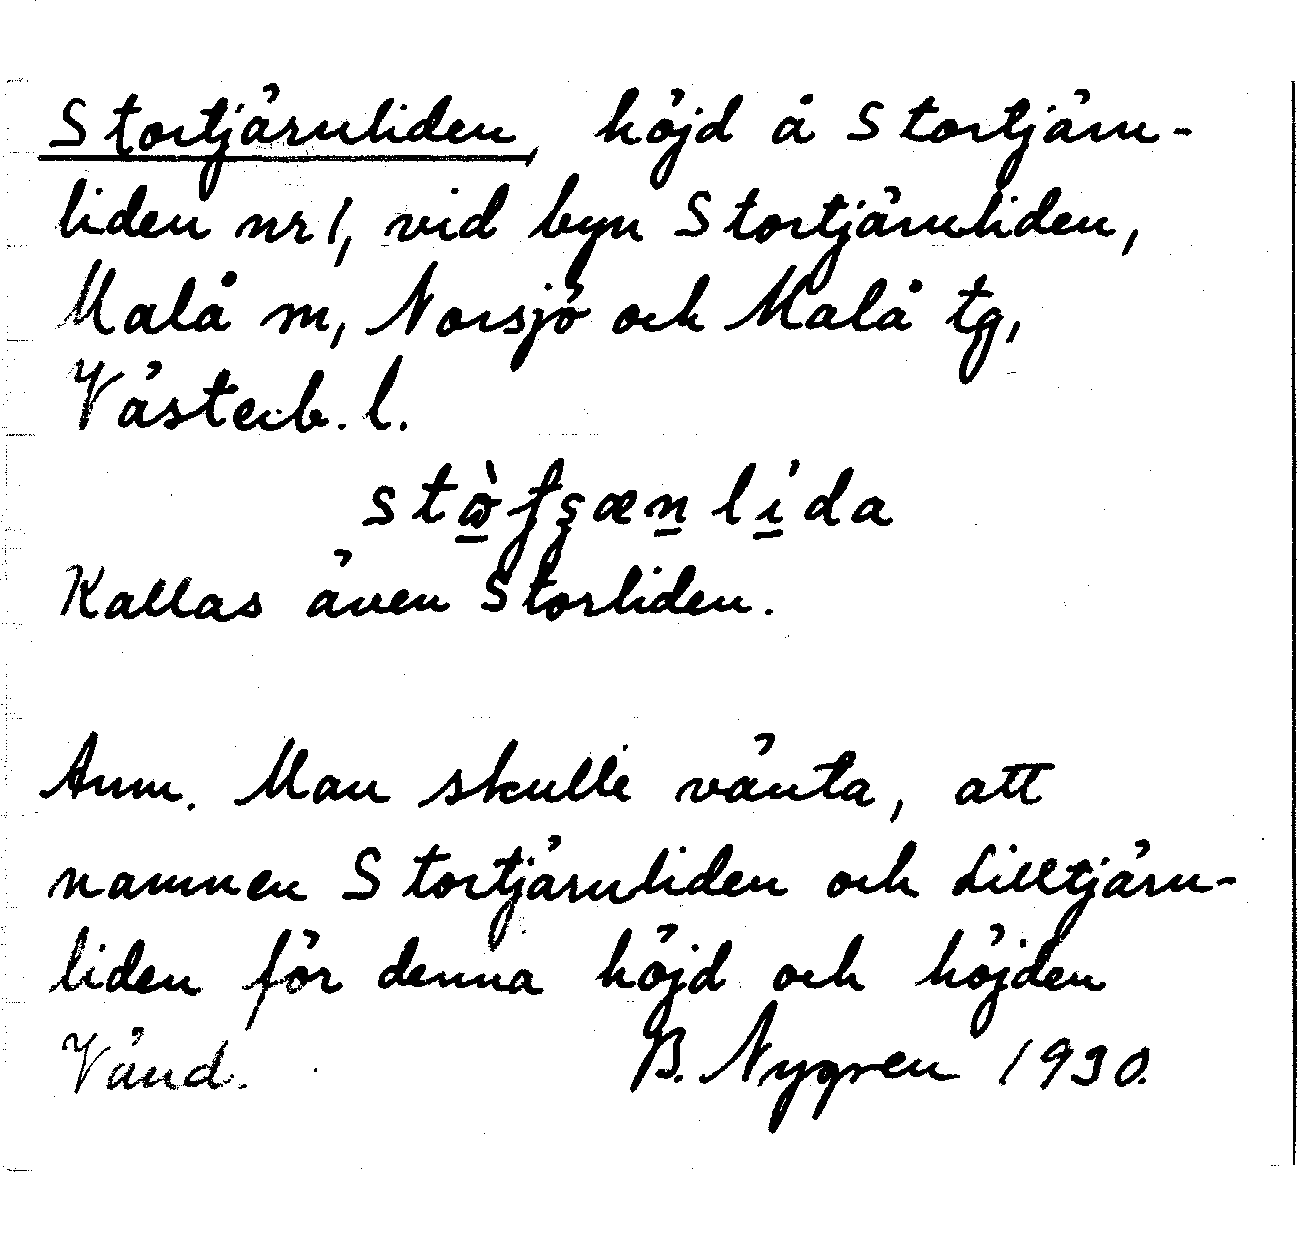 Stortjärnliden, höjd å Stortjärn-
liden nr 1, vid byn Stortjärnliden,
Malå sn, Norsjö och Malå tg,
Västerb. l.
Kallas även Storliden.
Anm. Man skulle vänta, att
namnen Stortjärnliden och Lilltjärn-
liden för denna höjd och höjden
Vänd. B. Nygren 1930.